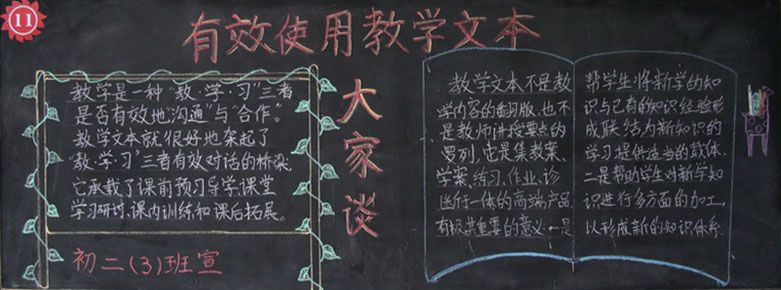 11
有效使用教学文本
大家谈
教学是一种"教·学·习"三者
是否有效地沟通"与"合作"。
教学文本就很好地架起了
"教·学·习"三者有效对话的桥梁,
它承载了课前预习导学,课堂
学习研讨,课内训练和课后拓展。
初二(3)班宣
教学文本不是教
学内容的翻版,也不
是教师讲授要点的
罗列,它是集教案、
学案、练习、作业、诊
断于一体的高端产品,
有极其重要的意义:一是
帮学生将新学的知
识与已有的知识经验形
成联结为新知识的
学习提供适当的载体.
二是帮助学生对新知
识进行多方面的加工,
以形成新的知识体系.